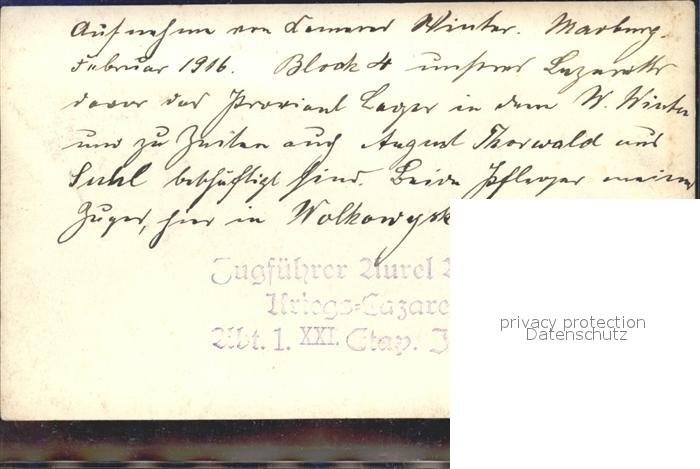 Aufnahme von Kamerad Winter. Marburg.
Februar 1916. Block 4 unseres Lazaretts
davor das Proviant Lager in dem W. Winter
und zu Zeiten auch August Thorwald aus
Suhl beschäftigt sind. Beide Pfleger meines
Zuges, hier in Wolkowysk
Zugführer Aurel
Kriegs-Lazare
Abt. 1. XXI. Etap. I
privacy protection
Datenschutz